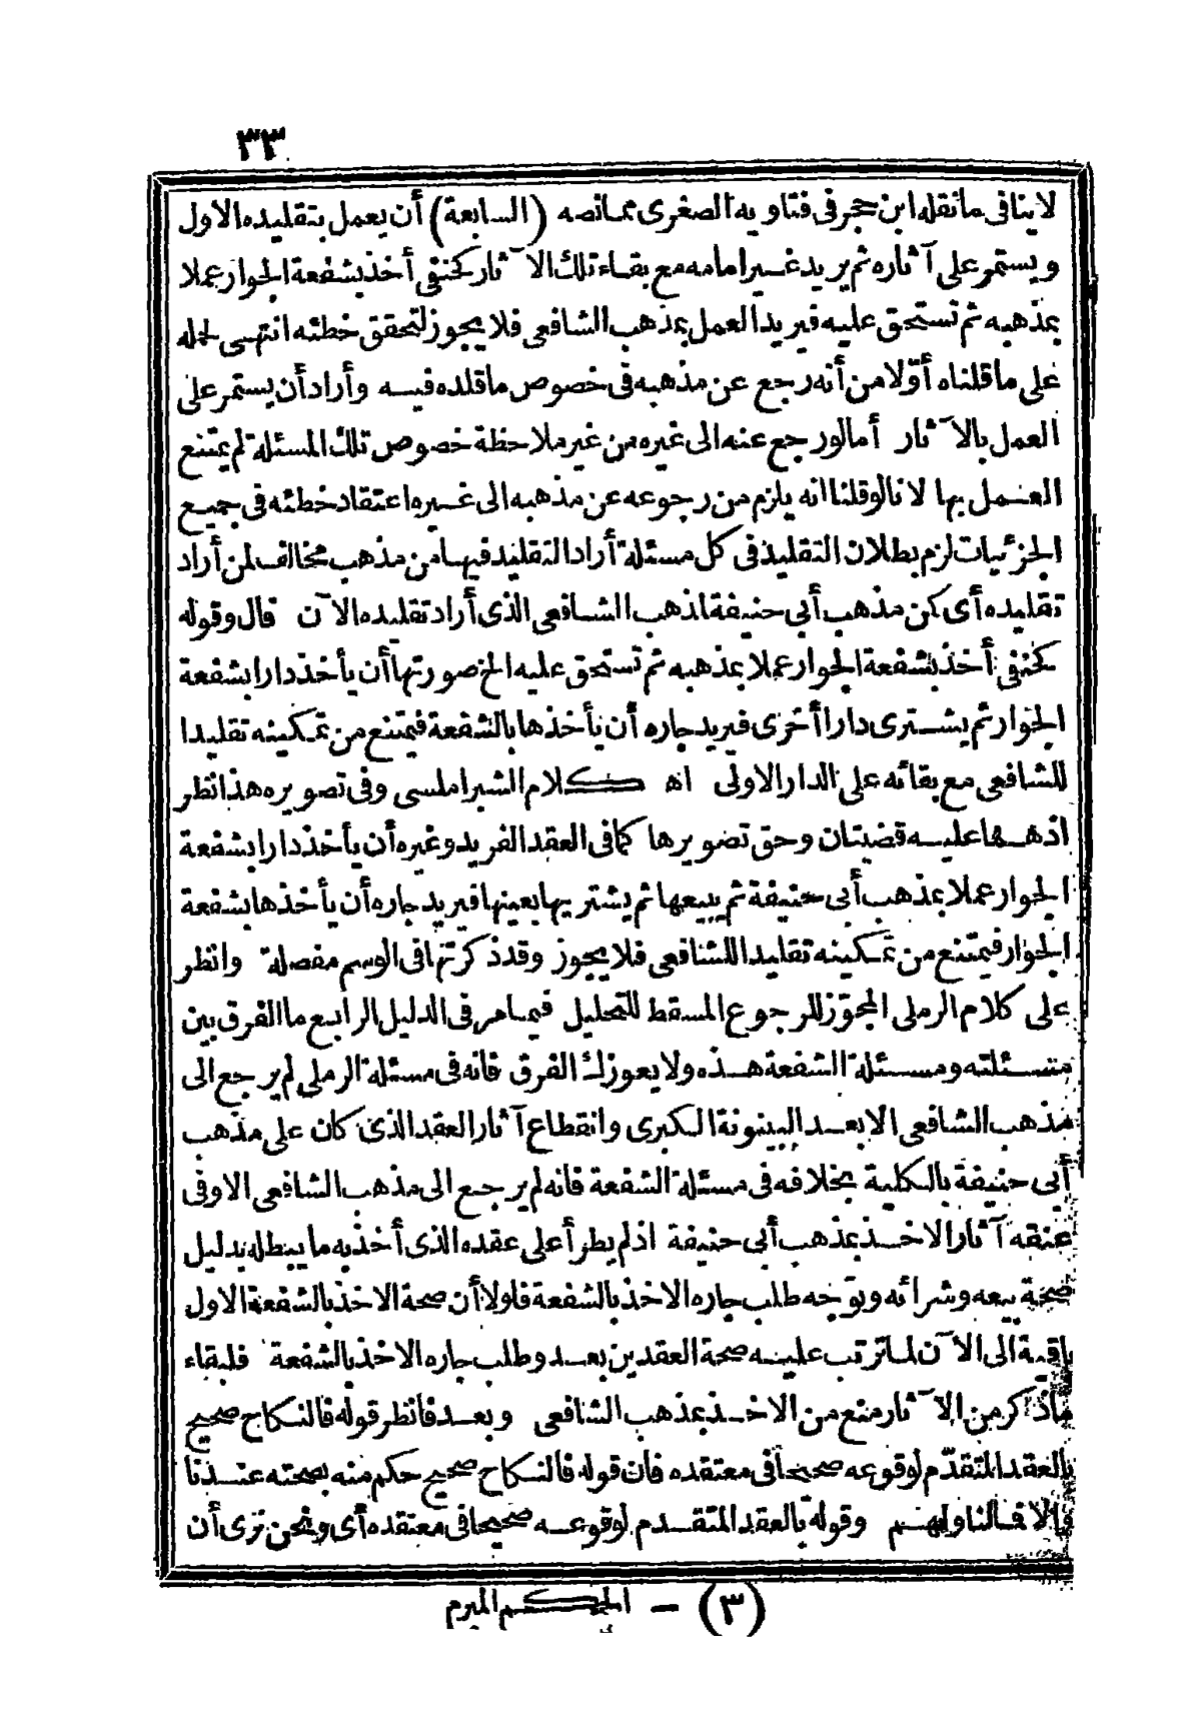 ٣٣
لا ينافى ما نقله ابن حجر فى فتاويه الصغرى مما نصه (السابعة) أن يعمل بتقليده الاول
ويستمر على آثاره ثم يريد غير امامه مع بقاء تلك الآثار كحنفى أخذ بشفعة الجوار عملا
بمذهبه ثم تستحق عليه فيريد العمل بمذهب الشافعى فلا يجوز لتحقق خطئه انتهى لحمله
على ما قلناه أوّلا من أنه رجع عن مذهبه فى خصوص ما قلده فيه وأراد أن يستمر على
العمل بالآثار أما لو رجع عنه الى غيره من غير ملاحظة خصوص تلك المسئلة لم يمتنع
العمل بها لانا لو قلنا انه يلزم من رجوعه عن مذهبه الى غيره اعتقاد خطئه فى جميع
الجزئيات لزم بطلان التقليد فى كل مسئلة أراد التقليد فيها من مذهب مخالف لمن أراد
تقليده أى كمن مذهب أبى حنيفة لمذهب الشافعى الذى أراد تقليده الآن قال وقوله
كحنفى أخذ بشفعة الجوار عملا بمذهبه ثم تستحق عليه الخ صورتها أن يأخذ دارا بشفعة
الجوار ثم يشترى دارا أخرى فيريد جاره أن يأخذها بالشفعة فيمتنع من تمكينه تقليدا
للشافعى مع بقائه على الدار الاولى اه كلام الشبراملسى وفى تصويره هذا نظر
اذ هما عليه قضيتان وحق تصويرها كما فى العقد الفريد وغيره أن يأخذ دارا بشفعة
الجوار عملا بمذهب أبى حنيفة ثم يبيعها ثم يشتريها بعينها فيريد جاره أن يأخذها بشفعة
الجوار فيمتنع من تمكينه تقليدا للشافعى فلا يجوز وقد ذكرتها فى الوسم مفصلة وانظر
على كلام الرملى المجوّز للرجوع المسقط للتحليل فيما مر فى الدليل الرابع ما الفرق بين
مسئلته ومسئلة الشفعة هذه ولا يعوزك الفرق فانه فى مسئلة الرملى لم يرجع الى
مذهب الشافعى الا بعد البينونة الكبرى وانقطاع آثار العقد الذى كان على مذهب
أبى حنيفة بالكلية بخلافه فى مسئلة الشفعة فانه لم يرجع الى مذهب الشافعى الا وفى
عنقه آثار الاخذ بمذهب أبى حنيفة اذ لم يطرأ على عقده الذى أخذ به ما يبطله بدليل
صحة بيعه وشرائه وتوجه طلب جاره الاخذ بالشفعة فلولا أن صحة الاخذ بالشفعة الاول
باقية الى الآن لما ترتب عليه صحة العقدين بعد وطلب جاره الاخذ بالشفعة فلبقاء
ماذكر من الآثار منع من الاخذ بمذهب الشافعى وبعد فانظر قوله فالنكاح صحيح
بالعقد المتقدّم لوقوعه صحيحا فى معتقده فان قوله فالنكاح صحيح حكم منه بصحته عندنا
والا فمالنا ولهم وقوله بالعقد المتقدم لوقوعه صحيحا فى معتقده أى ونحن نرى أن
(٣) - الحكم المبرم